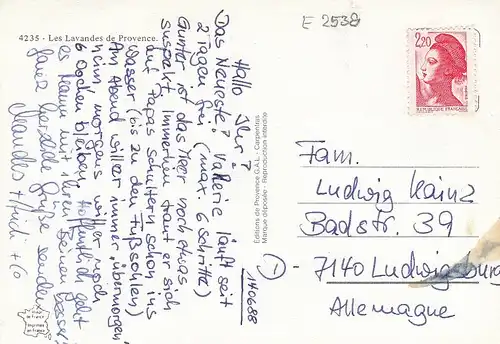 4235 - Les Lavandes de Provence.
E 2538
2,20
REPUBLIQUE FRANÇAISE
Hallo Ihr?
Das Neueste? Valerie läuft seit
2 Tagen frei (max. 6 Schritte)
Gunter ist das Meer noch etwas
suspekt. Immerhin traut er sich
auf Papas Schultern schon ins
Wasser (bis zu den Fußsohlen)
Am Abend will er immer "übermorgen"
heim, morgens will er noch
6 Wochen bleiben. Hoffentlich geht
es Mama mit ihren Beinen besser!
Ganz herzliche Grüße senden
+ Co
Editions de Provence G.A.L. - Carpentras
Marque déposée - Reproduction interdite
140688
Fam.
Ludwig Kainz
Badstr. 39
7140 Ludwigsburg
Allemagne